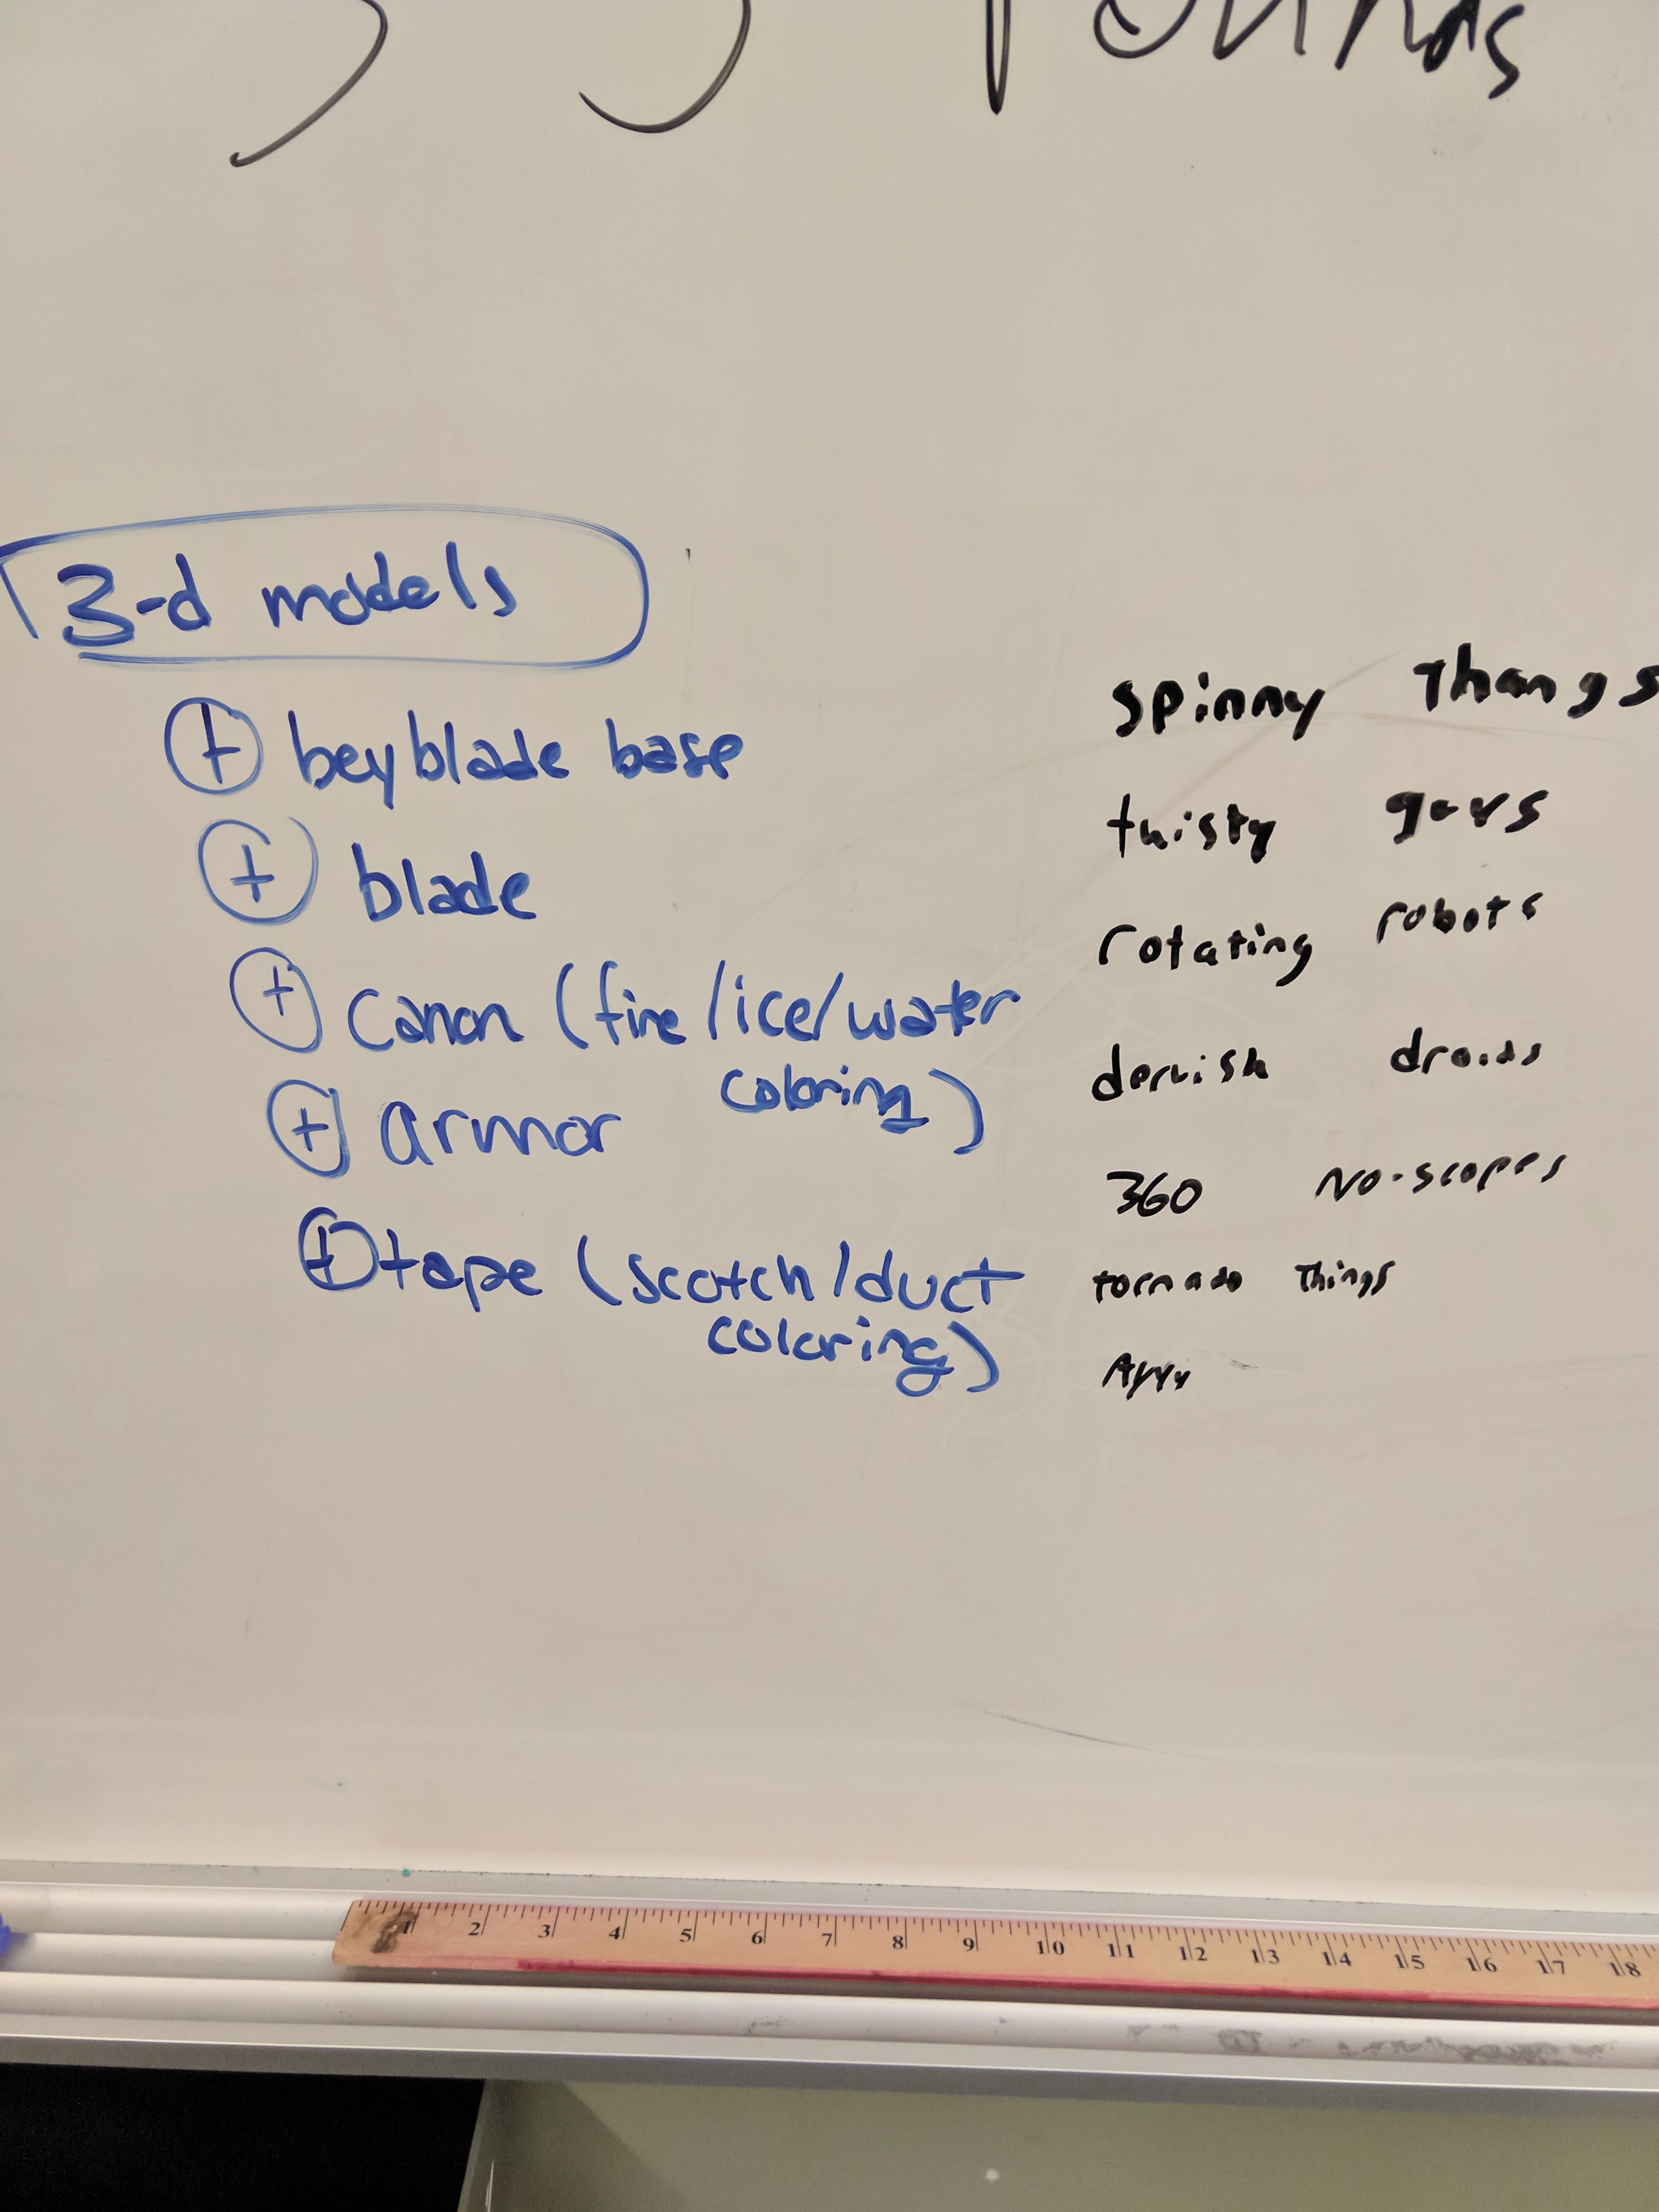 3-d models
+ beyblade base
+ blade
+ canon (fire/ice/water
coloring)
+ armor
+ tape (scotch/duct
coloring)
spinny Thangs
twisty gars
rotating robots
dervish droids
360 No-scopes
tornado Things
Ayyy
1 2 3 4 5 6 7 8 9 10 11 12 13 14 15 16 17 18